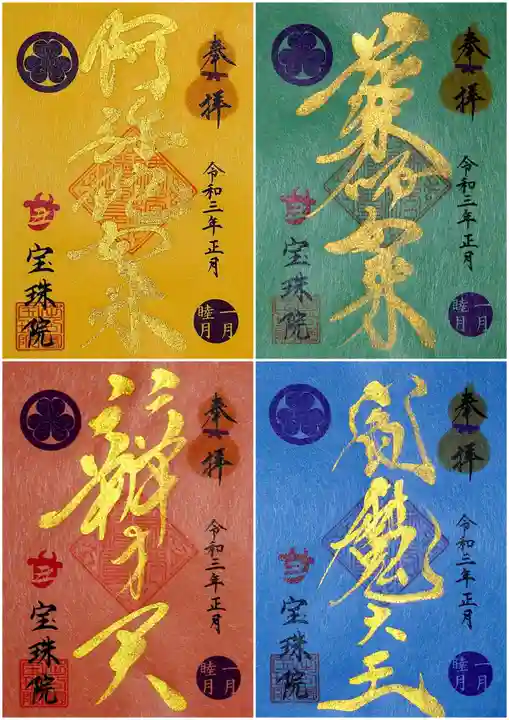 奉拝
阿弥陀如来
令和三年正月
一月
睦月
宝珠院
奉拝
薬師如来
令和三年正月
一月
睦月
宝珠院
奉拝
辨才天
令和三年正月
一月
睦月
宝珠院
奉拝
閻魔大王
令和三年正月
一月
睦月
宝珠院